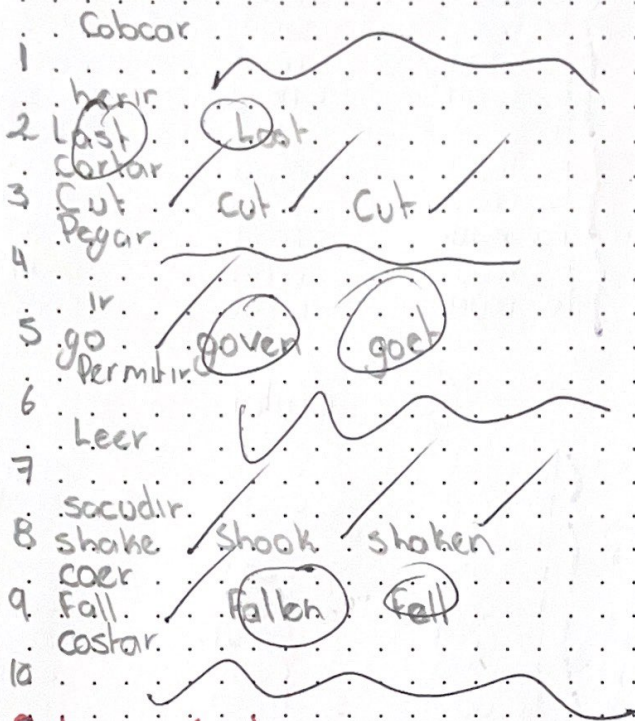 Colocar
1
herir
2 Last Lost
cortar
3 Cut cut Cut
Pegar
4
ir
5 go goven goet
Permitir
6
Leer
7
sacudir
8 shake Shook shaken
caer
9 Fall Fallen fell
costar
10